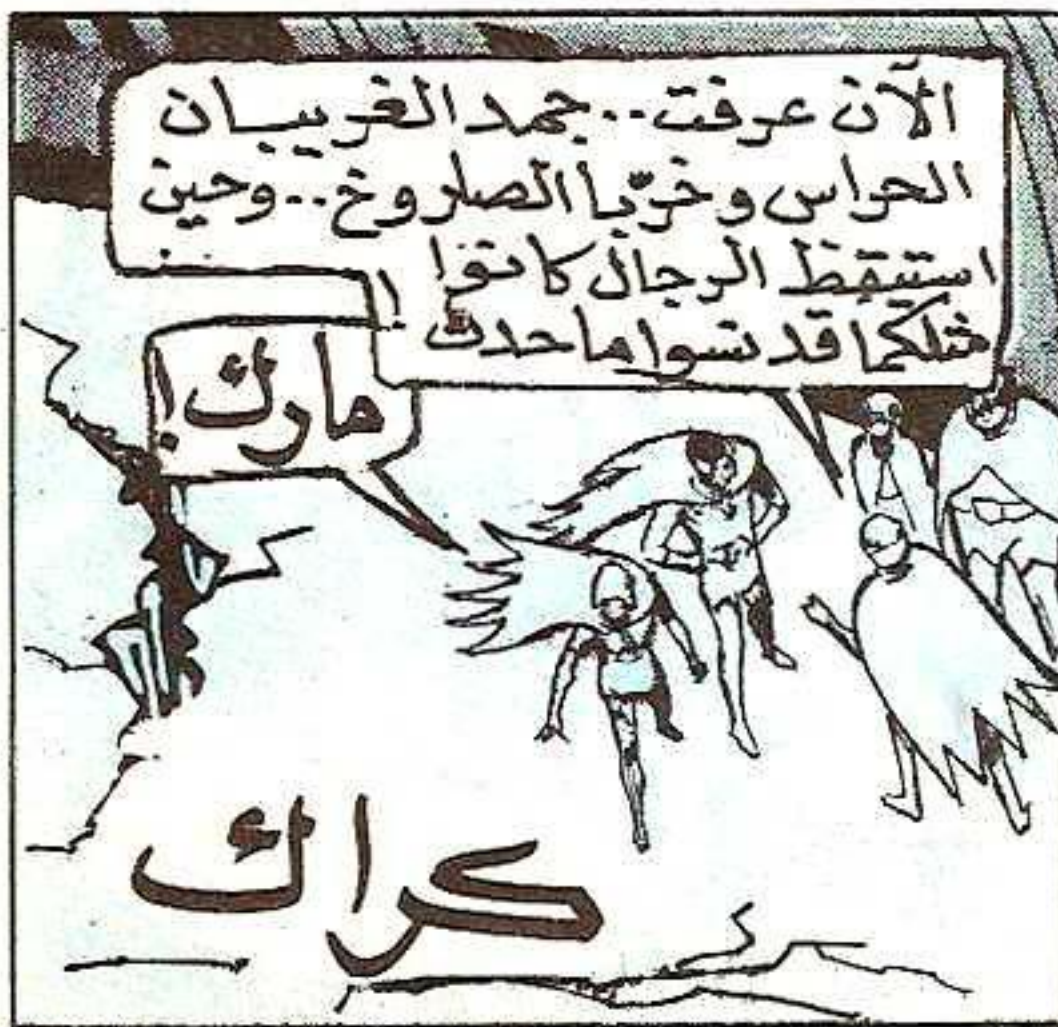 الآن عرفت.. جمد الغريبان
الحراس وخرّبا الصاروخ.. وحين
استيقظ الرجال كانوا
مثلكما قد نسوا ما حدث!
مارك!
كراك